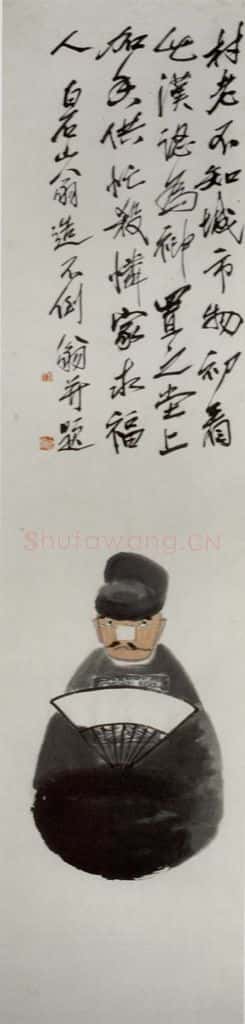 村老不知城市物初看
此漢認為神置之堂上
加香供忙殺憐家求福
人
白石山翁造不倒翁并題
Shufawang.CN